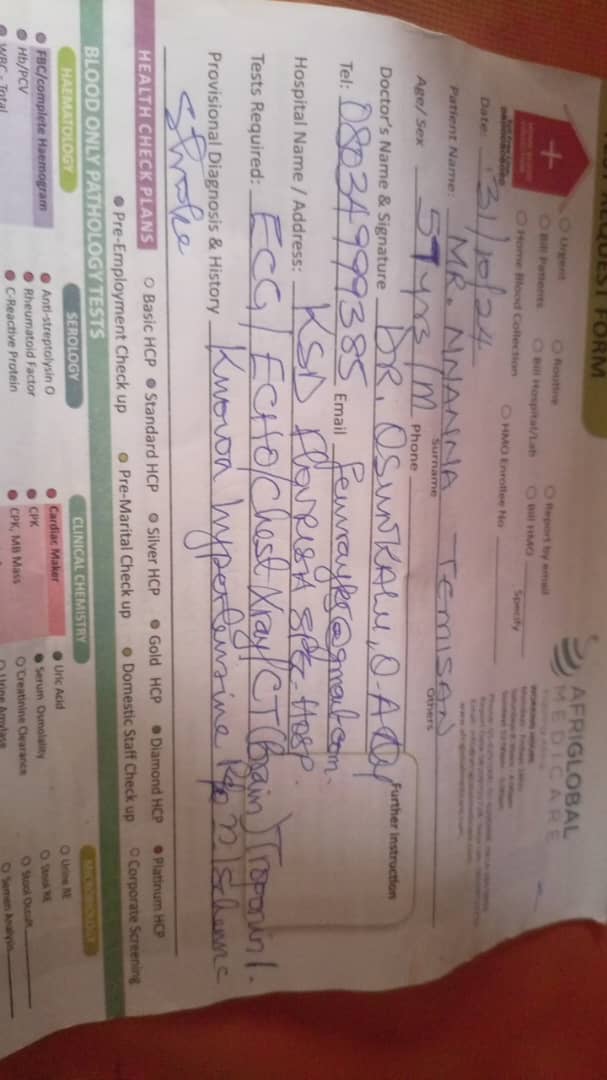 REQUEST FORM
AFRIGLOBAL
MEDICARE
Urgent
Routine
Report by email
Bill Patients
Bill Hospital/Lab
Bill HMO
Specify
Home Blood Collection
HMO Enrollee No
Date: 31/10/24
Patient Name: MR. NNANNA TEMISAN
Surname
Others
Age/ Sex 59 yrs /M Phone
Doctor's Name & Signature DR. OSUNKALU, O.A
Further instruction
Tel: 08034999385 Email
Hospital Name / Address: KSD
Tests Required: ECG/ ECHO/Chest Xray/CT(Brain)Troponin 1.
Provisional Diagnosis & History Known hypertensive
Ischemic
stroke
HEALTH CHECK PLANS
Basic HCP
Standard HCP
Silver HCP
Gold HCP
Diamond HCP
Platinum HCP
Pre-Employment Check up
Pre-Marital Check up
Domestic Staff Check up
Corporate Screening
BLOOD ONLY PATHOLOGY TESTS
HAEMATOLOGY
SEROLOGY
CLINICAL CHEMISTRY
MICROBIOLOGY
FBC/complete Haemogram
Anti-streptolysin O
Cardiac Maker
Uric Acid
Urine RE
Hb/PCV
Rheumatoid Factor
CPK
Serum Osmolality
Stook RE
WBC - Total
C-Reactive Protein
CPK, MB Mass
Creatinine Clearance
Stool Occult
Urine Amylase
Semen Analysis